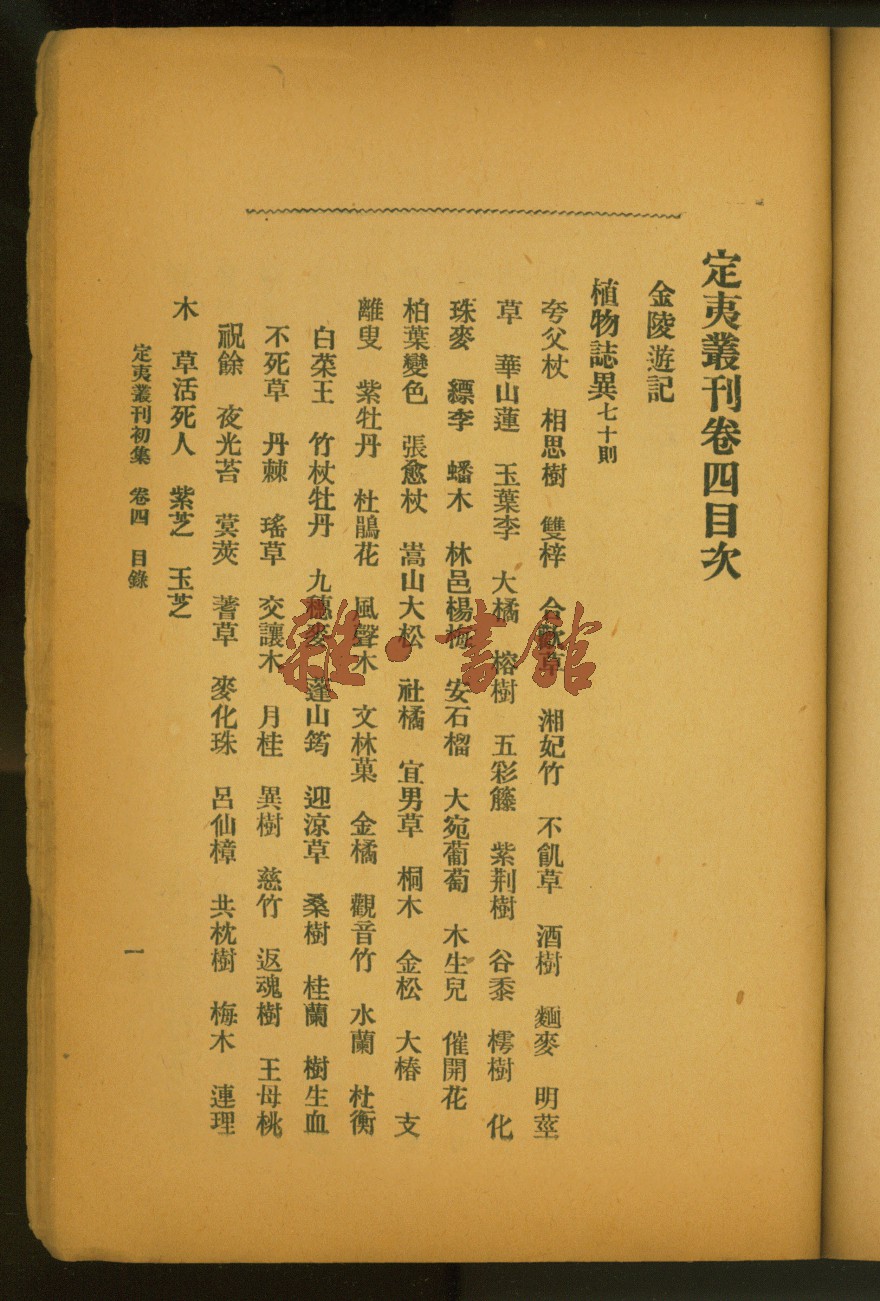 定夷叢刊卷四目次
金陵遊記
植物誌異七十則
夸父杖　相思樹　雙梓　合歡草　湘妃竹　不飢草　酒樹　麵麥　明莖
草　華山蓮　玉葉李　大橘　榕樹　五彩籐　紫荆樹　谷黍　樗樹　化
珠麥　縹李　蟠木　林邑楊梅　安石榴　大宛葡萄　木生兒　催開花
柏葉變色　張愈杖　嵩山大松　社橘　宜男草　桐木　金松　大椿　支
離叟　紫牡丹　杜鵑花　風聲木　文林菓　金橘　觀音竹　水蘭　杜衡
白菜王　竹杖牡丹　九穗麥　蓬山筠　迎涼草　桑樹　桂蘭　樹生血
不死草　丹棘　瑤草　交讓木　月桂　異樹　慈竹　返魂樹　王母桃
祝餘　夜光苔　蓂莢　蓍草　麥化珠　呂仙樟　共枕樹　梅木　連理
木　草活死人　紫芝　玉芝
定夷叢刊初集　卷四　目錄
一
雜·書館